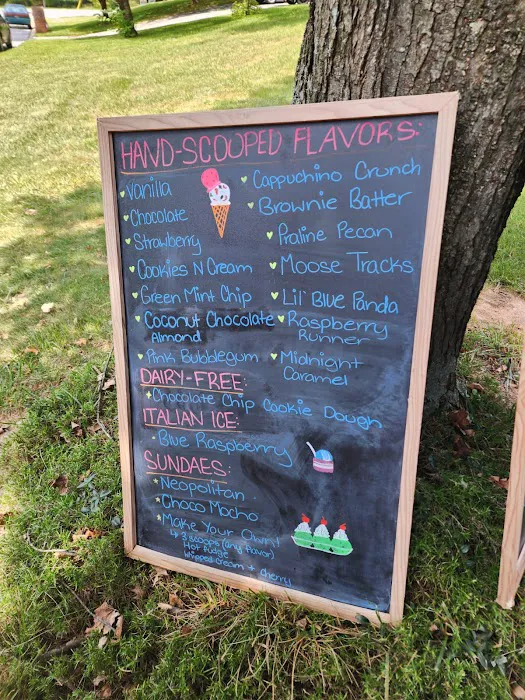 HAND-SCOOPED FLAVORS:
Vanilla
Chocolate
Strawberry
Cookies N Cream
Green Mint Chip
Coconut Chocolate
Almond
Pink Bubblegum
Cappuchino Crunch
Brownie Batter
Praline Pecan
Moose Tracks
Lil' Blue Panda
Raspberry
Runner
Midnight
Caramel
DAIRY-FREE:
Chocolate Chip Cookie Dough
ITALIAN ICE:
Blue Raspberry
SUNDAES:
Neopolitan
Choco Mocho
Make Your Own!
3 scoops (any flavor)
Hot fudge
Whipped cream + Cherry